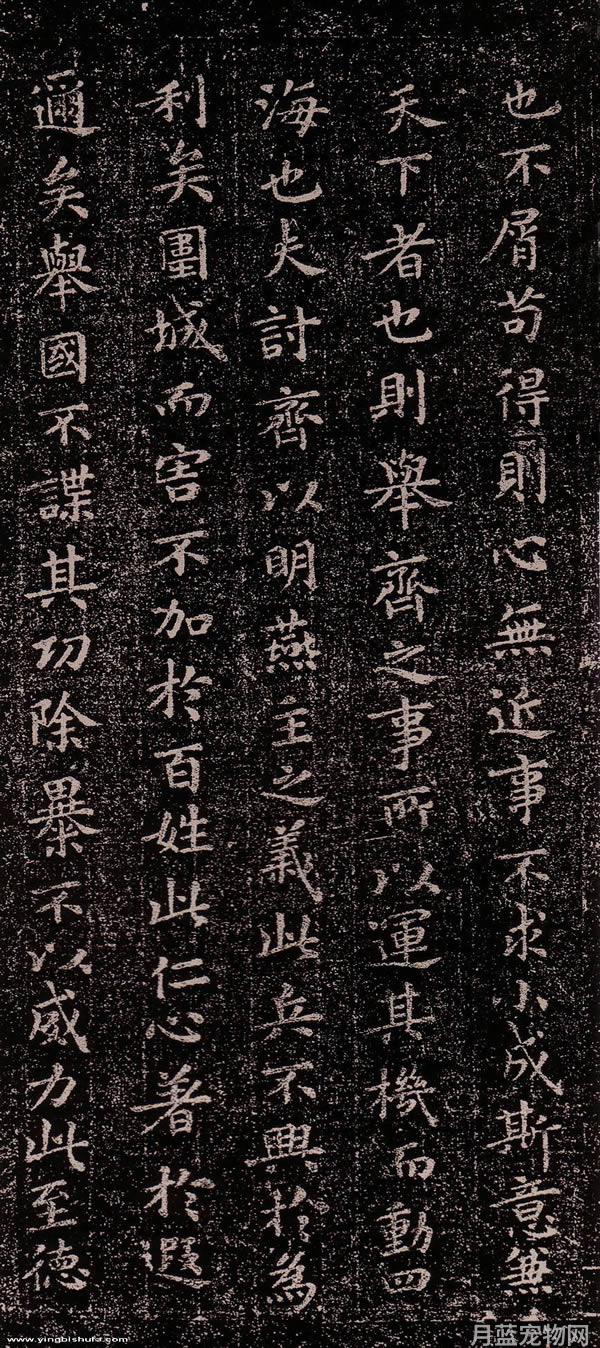 也不屑苟得則心無近事不求小成斯意兼
天下者也則舉齊之事所以運其機而動四
海也夫討齊以明燕主之義此兵不興於為
利矣圍城而害不加於百姓此仁心著於遐
邇矣舉國不謀其功除暴不以威力此至德
www.yingbishufa.com
月蓝宠物网